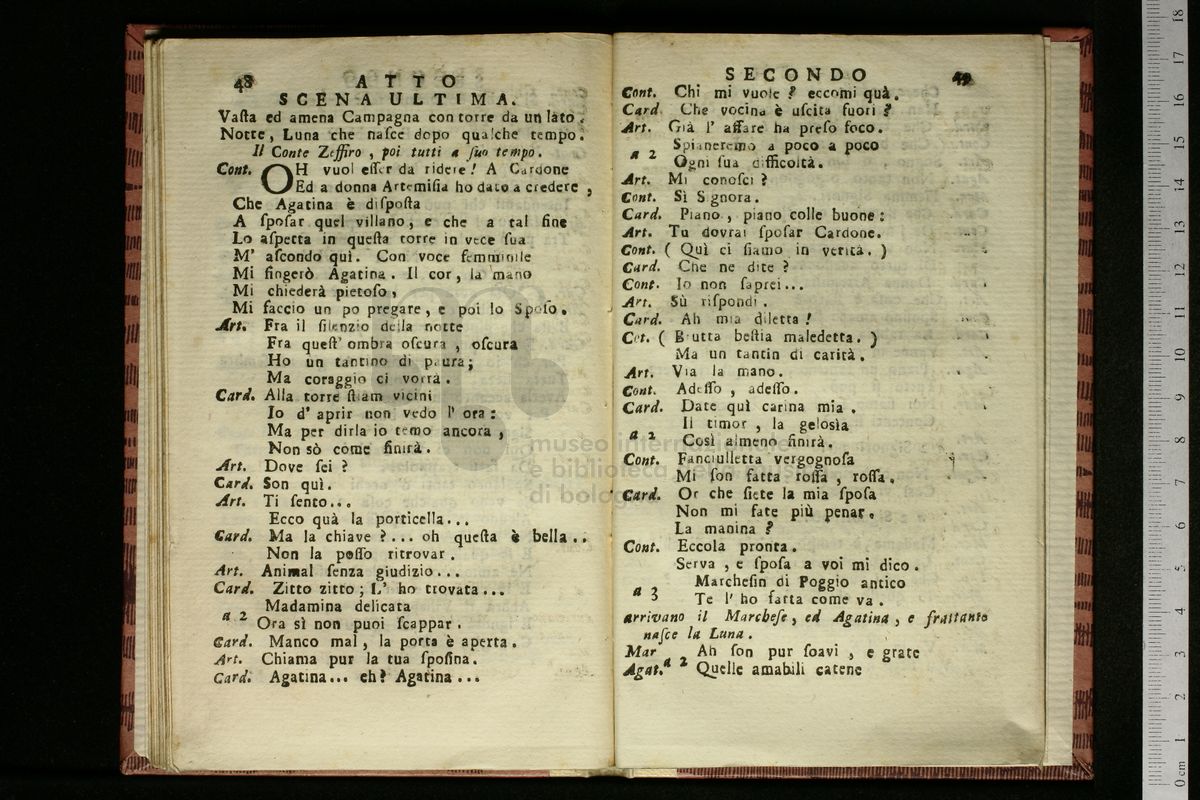 48
ATTO
SCENA ULTIMA.
Vaſta ed amena Campagna con torre da un lato.
Notte, Luna che naſce dopo qualche tempo.
Il Conte Zeffiro, poi tutti a ſuo tempo.
Cont. OH vuol eſſer da ridere! A Cardone
Ed a donna Artemiſia ho dato a credere,
Che Agatina è diſpoſta
A ſpoſar quel villano, e che a tal fine
Lo aſpetta in queſta torre in vece ſua
M' aſcondo quì. Con voce femminile
Mi fingerò Agatina. Il cor, la mano
Mi chiederà pietoſo,
Mi faccio un po pregare, e poi lo Spoſo.
Art. Fra il ſilenzio della notte
Fra queſt' ombra oſcura, oſcura
Ho un tantino di paura;
Ma coraggio ci vorrà.
Card. Alla torre ſtiam vicini
Io d' aprir non vedo l' ora:
Ma per dirla io temo ancora,
Non sò come finirà.
Art. Dove ſei?
Card. Son quì.
Art. Ti ſento...
Ecco quà la porticella...
Card. Ma la chiave?... oh queſta è bella..
Non la poſſo ritrovar.
Art. Animal ſenza giudizio...
Card. Zitto zitto; L' ho trovata...
Madamina delicata
a 2
Ora sì non puoi ſcappar.
Card. Manco mal, la porta è aperta.
Art. Chiama pur la tua ſpoſina.
Card. Agatina... eh? Agatina...
SECONDO
49
Cont. Chi mi vuole? eccomi quà.
Card. Che vocina è uſcita fuori?
Art. Già l' affare ha preſo foco.
Spianeremo a poco a poco
a 2
Ogni ſua difficoltà.
Art. Mi conoſci?
Cont. Sì Signora.
Card. Piano, piano colle buone:
Art. Tu dovrai ſpoſar Cardone.
Cont. (Quì ci ſiamo in verità.)
Card. Che ne dite?
Cont. Io non ſaprei...
Art. Sù riſpondi.
Card. Ah mia diletta!
Cot. (Brutta beſtia maledetta.)
Ma un tantin di carità.
Art. Via la mano.
Cont. Adeſſo, adeſſo.
Card. Date quì carina mia.
Il timor, la gelosìa
a 2
Così almeno finirà.
Cont. Fanciulletta vergognoſa
Mi ſon fatta roſſa, roſſa.
Card. Or che ſiete la mia ſpoſa
Non mi fate più penar.
La manina?
Cont. Eccola pronta.
Serva, e ſpoſa a voi mi dico.
Marcheſin di Poggio antico
a 3
Te l' ho fatta come va.
arrivano il Marcheſe, ed Agatina, e frattanto
naſce la Luna.
Mar Ah ſon pur ſoavi, e grate
Agat. a 2 Quelle amabili catene
museo inter
e biblioteca della mus
di bolog
0 cm 1 2 3 4 5 6 7 8 9 10 11 12 13 14 15 16 17 18